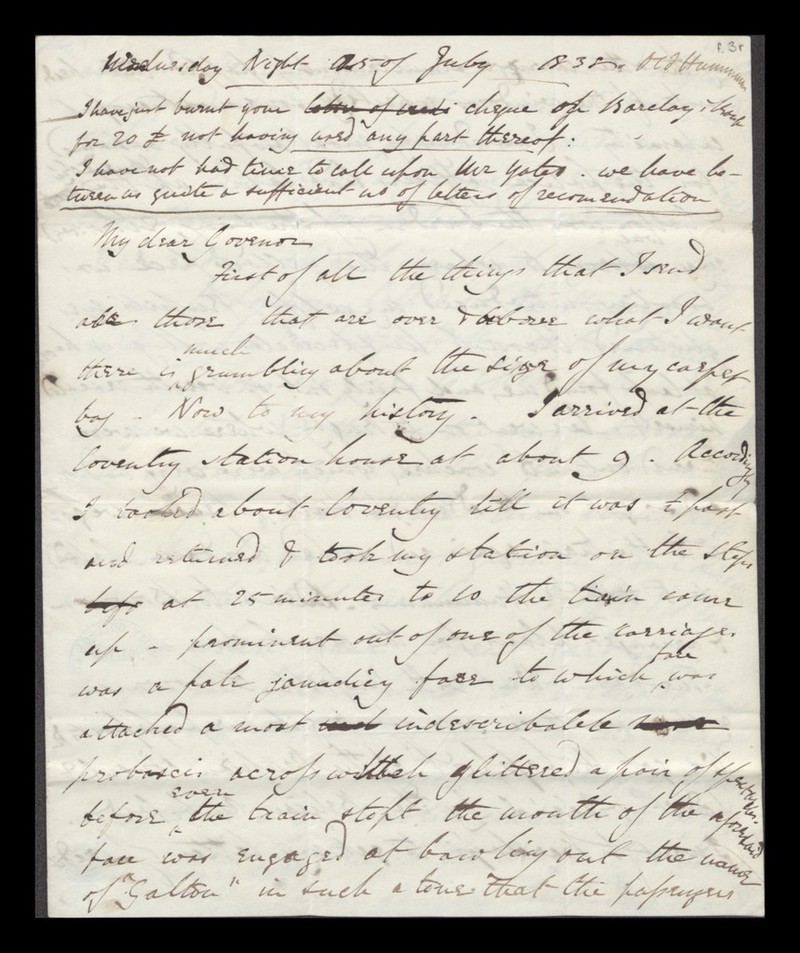 f. 3r
Wednesday Night 25 of July 1838. Old Hummums
I have just burnt your letter of cheque of Barclay & Bank
for 20 £ not having used any part thereof:
I have not had time to call upon Mr Yates. we have be-
tween us quite a sufficient no of letters of recomendation
My dear Govenor
First of all the things that I send
are those that are over & above what I want
there is much grumbling about the size of my carpet
bag - Now to my history. I arrived at the
Coventry station house at about 9. Accordingly
I looked about Coventry till it was ½ past
and returned & took my station on the steps
befo at 25 minutes to 10 the train came
up - prominent out of one of the carriages
was a pale jaundicy face to which face was
attached a most indescribable
proboscis across which glittered a pair of spectacles.
before even the train stopt the mouth of the aforesaid
face was engaged at bawling out the name
of "Galton" in such a tone that the passengers